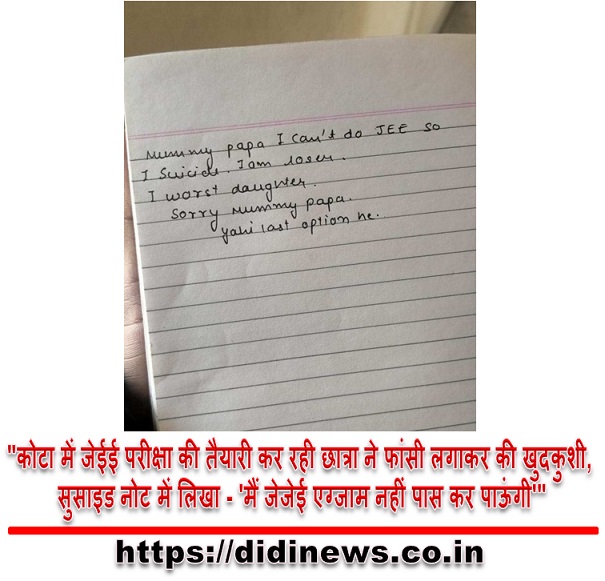 Mummy papa I can't do JEE so
I suicide. I am loser.
I worst daughter.
Sorry Mummy papa.
yahi last option he.
"कोटा में जेईई परीक्षा की तैयारी कर रही छात्रा ने फांसी लगाकर की खुदकुशी,
सुसाइड नोट में लिखा - 'मैं जेजेई एग्जाम नहीं पास कर पाऊंगी'"
https://didinews.co.in